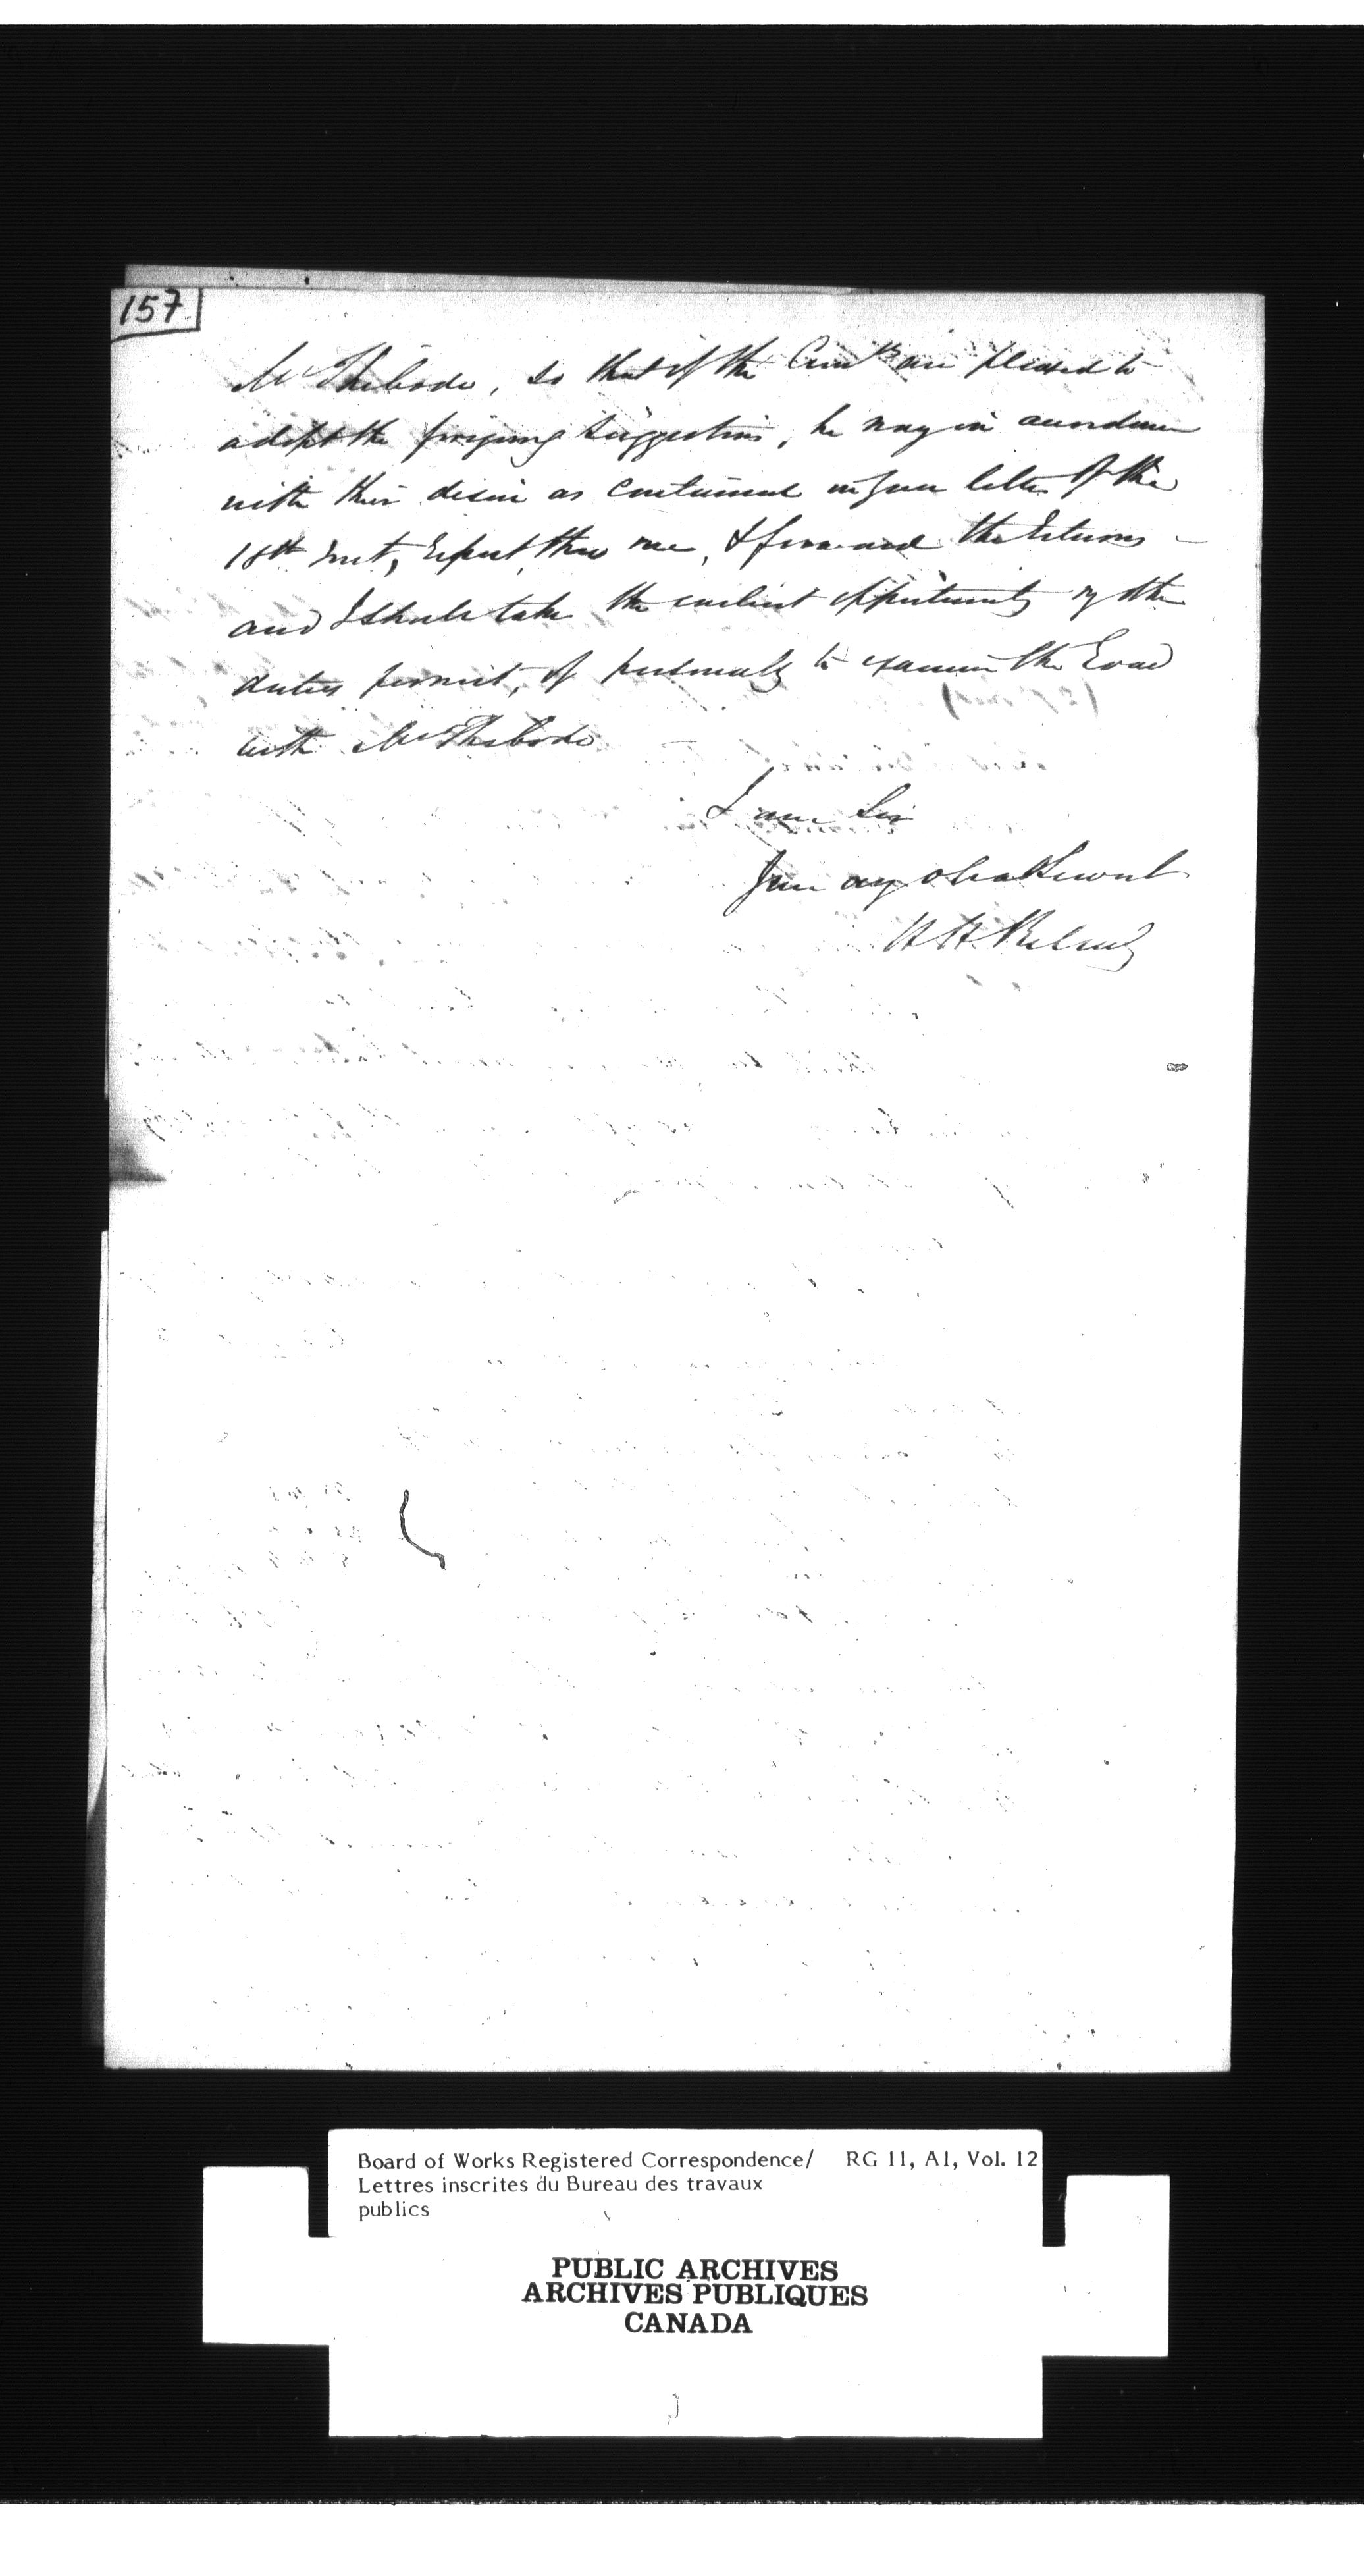 157
Mr Thibodo, so that if the Comrs are pleased to
adopt the foregoing suggestions, he may in accordance
with their desire as contained in your letter of the
18th Inst, report thro me, & forward the returns –
and I shall take the earliest opportunity my other
duties permit, of personally to examine the Road
with Mr Thibodo
I am Sir
Your
H H
Board of Works Registered Correspondence/ RG 11, A1, Vol. 12
Lettres inscrites du Bureau des travaux
publics
PUBLIC ARCHIVES
ARCHIVES PUBLIQUES
CANADA